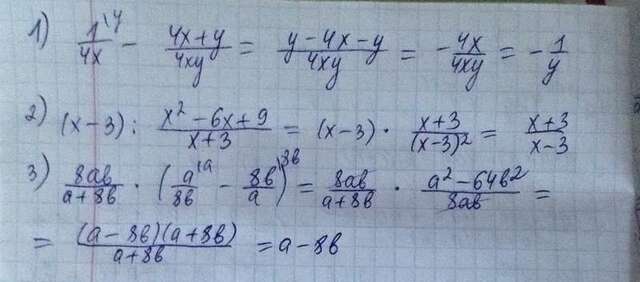 1) 1^{\y}/4x - (4x+y)/4xy = (y-4x-y)/4xy = -4x/4xy = -1/y
2) (x-3) : (x²-6x+9)/(x+3) = (x-3) · (x+3)/(x-3)² = (x+3)/(x-3)
3) 8ab/(a+8b) · (a^{\a}/8b - 8b/a)^{\8b} = 8ab/(a+8b) · (a²-64b²)/8ab =
= (a-8b)(a+8b)/(a+8b) = a-8b